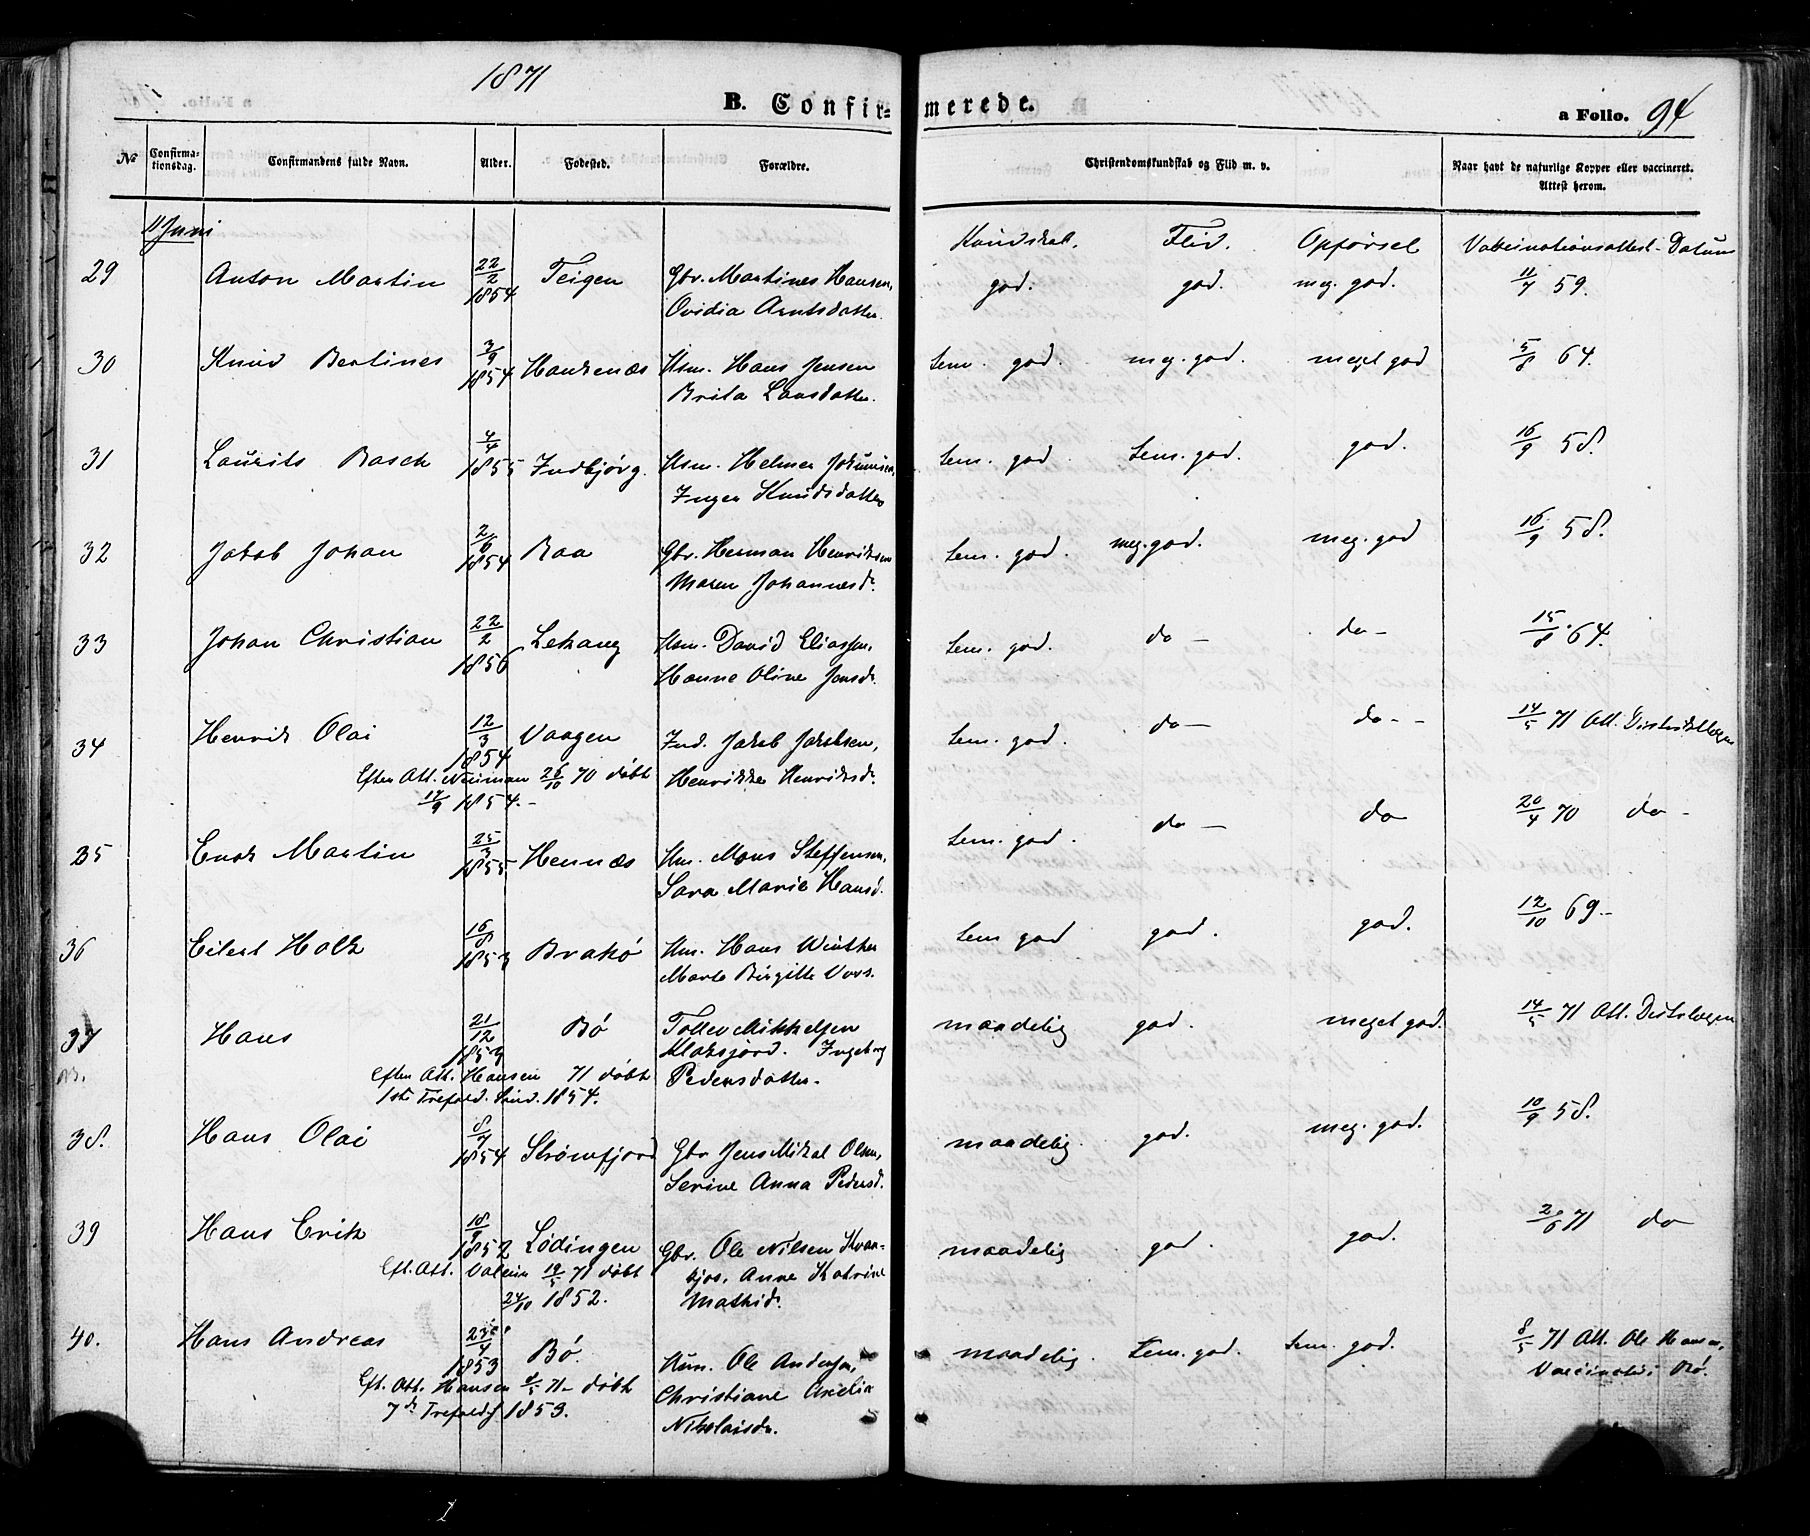 1871
B. Confirmerede.
a Folio. 94
No Confirmationsdag. Confirmandens fulde Navn. Alder. Fødested. Forældre. Christendomskundskab og Flid m. v. Naar havt de naturlige Kopper eller vaccineret. Attest herom.
11 Juni Kundskab. Flid. Opførsel Vaccinationsattest-Datum
29 Anton Martin 22/2 1854 Teigen Gbr. Martines Hansen, god. god. meg. god. 11/7 59.
Ovidia Arntsdatter.
30 Knud Bertines 3/9 1854 Haukenæs Hsm. Hans Jensen tem. god. meg. god. meget god 5/8 64.
Brita Larsdatter.
31 Laurits Rasch 4/4 1855 Indbjörg. Hsm. Helmer Johnsen, tem. god tem. god. god. 16/9 58.
Inger Knudsdatter
32 Jakob Johan 2/6 1854 Raa Gbr. Herman Henriksen tem. god. meg. god. meg. god 16/9 58.
Maren Johannesd.
33 Johan Christian 22/2 1856 Lekang Hsm. David Eliassen, tem. god. do — do — 15/8 64.
Hanne Oline Jensd.
34 Henrik Olai 12/3 1854 Vaagen Ind. Jakob Jakobsen, tem. god. do — do - - 14/5 71 Att. Distriktslægen
Efter Att. Neuman 26/10 70 döbt Henrikke Henriksd.
17/9 1854. -
35 Enok Martin 25/3 1855 Hennæs Hm. Mons Steffensen, tem. god. do — do 20/4 70 do -
Sara Marie Hansd.
36 Eilert Holk 16/8 1853 Brakö Hm. Hans Winther tem god god. god. 12/10 69. -
Marte Birgitte Vors.
37 Hans 21/12 1853 Bö Tollev Mikkelsen maadelig god. meget god. 14/5 71 Att. Distslægen
Klaksjord. Ingeborg
Efter Att. Hansen 71 döbt Pedersdatter. -
1ste Trefold. Sönd. 1854.
38. Hans Olai 8/7 1854 Strömfjord Gbr Jens Mikal Olsen, maadelig. god. meg. god. 10/9 58.
Serine Anna Pedersd.
39 Hans Erik 18/9 1852 Lödingen Gbr. Ole Nilsen Kvan- maadelig god. god. 2/6 71 do
Eft. Att. 19/5 71 döbt Anne Katrine
24/10 1852. Mathisd.
40. Hans Andreas 23/4 1853 Bö. Hm. Ole Andersen, maadelig. tem. god. tem. god. 8/5 71 Att. Ole Hansen,
Eft. Att. Hansen 8/5 71 - döbt Christiane Vaccinatör i Bö.
7de Trefoldgh 1853. Nikolaisd.